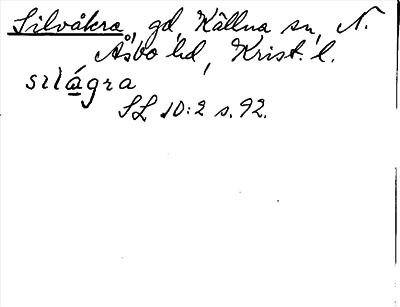 Silvåkra, gd, Källna sn, N.
Åsbo hd, Krist. l.
silágra
SL 10:2 s. 92.